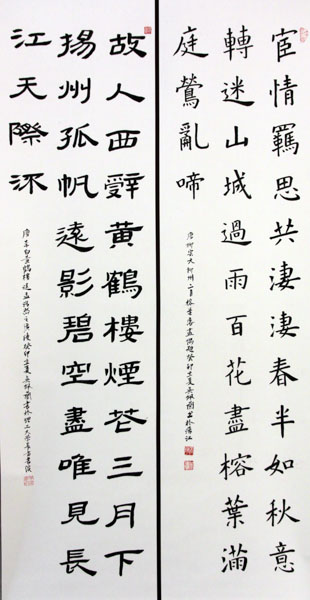 宦情羈思共淒淒春半如秋意
轉迷山城過雨百花盡榕葉滿
庭鶯亂啼
唐柳宗元柳州二月榕葉落盡偶題癸卯
故人西辭黃鶴樓煙花三月下
揚州孤帆遠影碧空盡唯見長
江天際流
唐李白黃鶴樓送孟浩然之廣陵癸卯